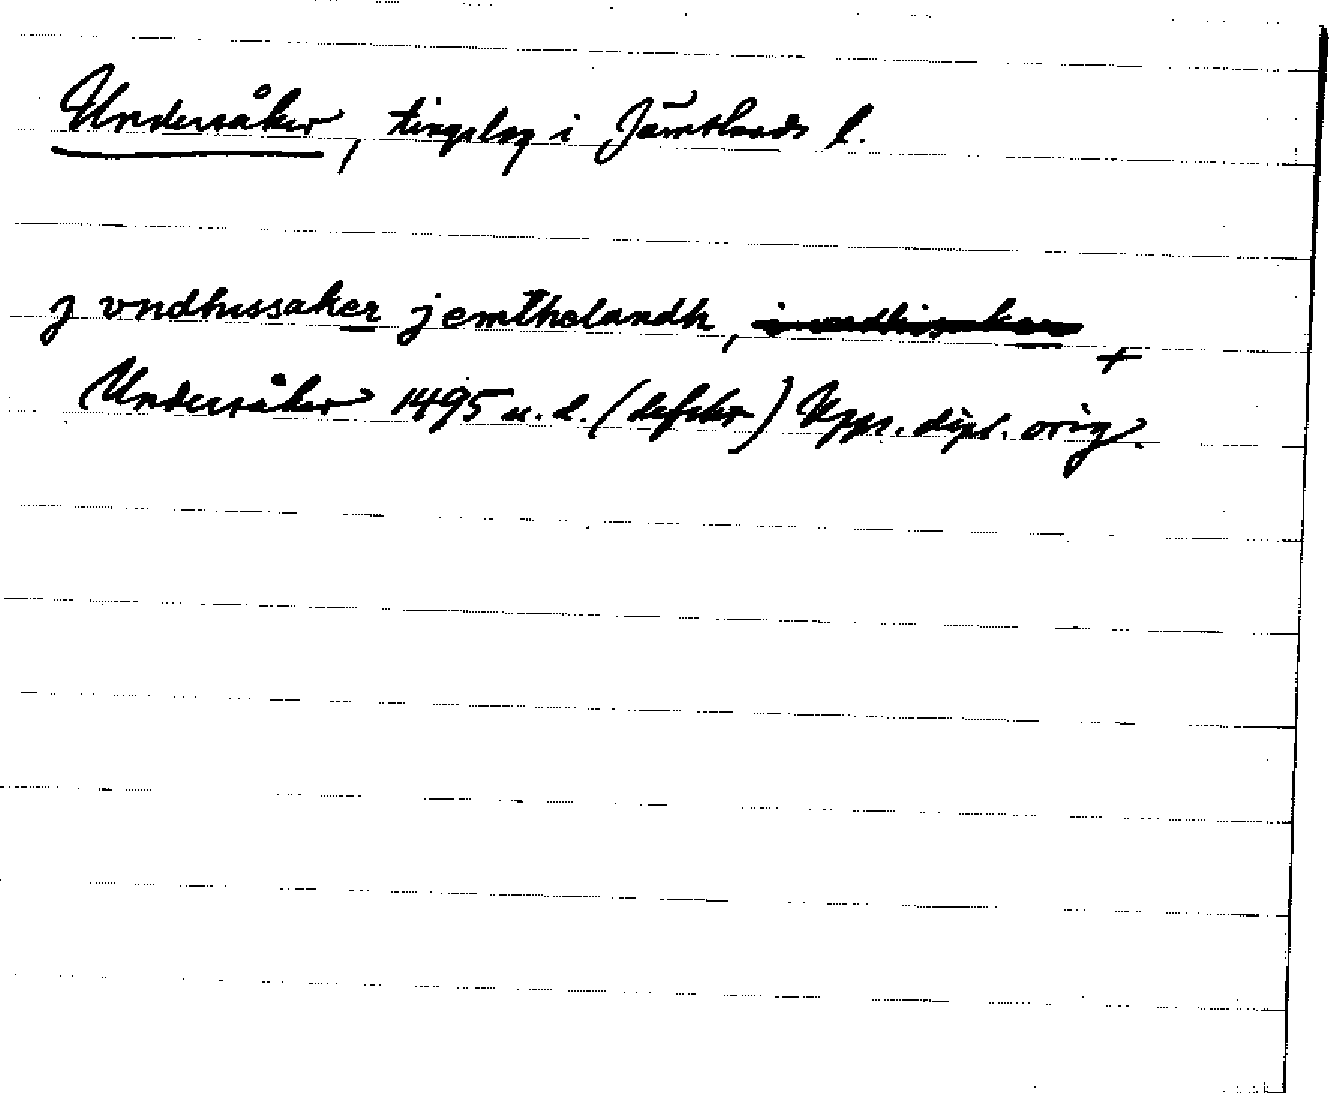 Undersåker, tingslag i Jämtlands l.
j vndhussaker jemthelandh, +
Undersåker 1495 u. d. (defekt) Upps. dipl. orig.